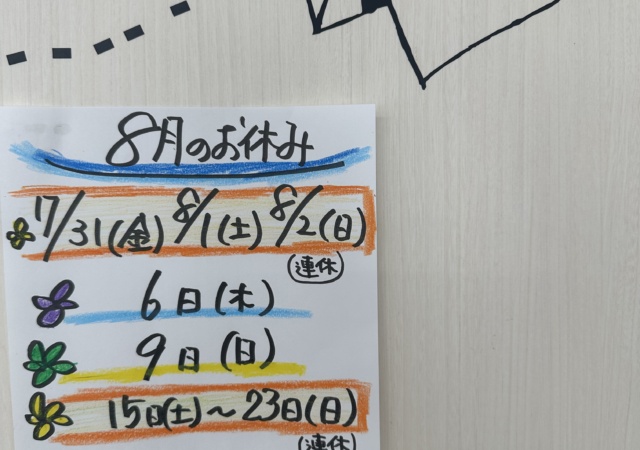 8月のお休み
7/31(金) 8/1(土) 8/2(日)
連休
6日(木)
9日(日)
15日(土)～23日(日)
(連休